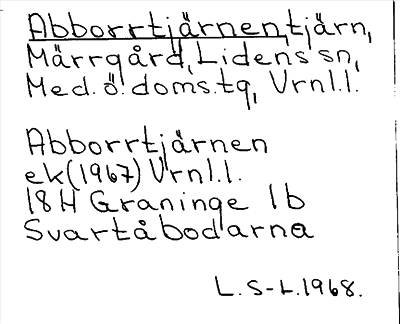 Abborrtjärnen, tjärn,
Märrgård, Lidens sn,
Med. ö. doms.tg, Vrnl.l.
Abborrtjärnen
ek (1967) Vrnl.l.
18H Graninge 1b
Svartåbodarna
L. S-L. 1968.